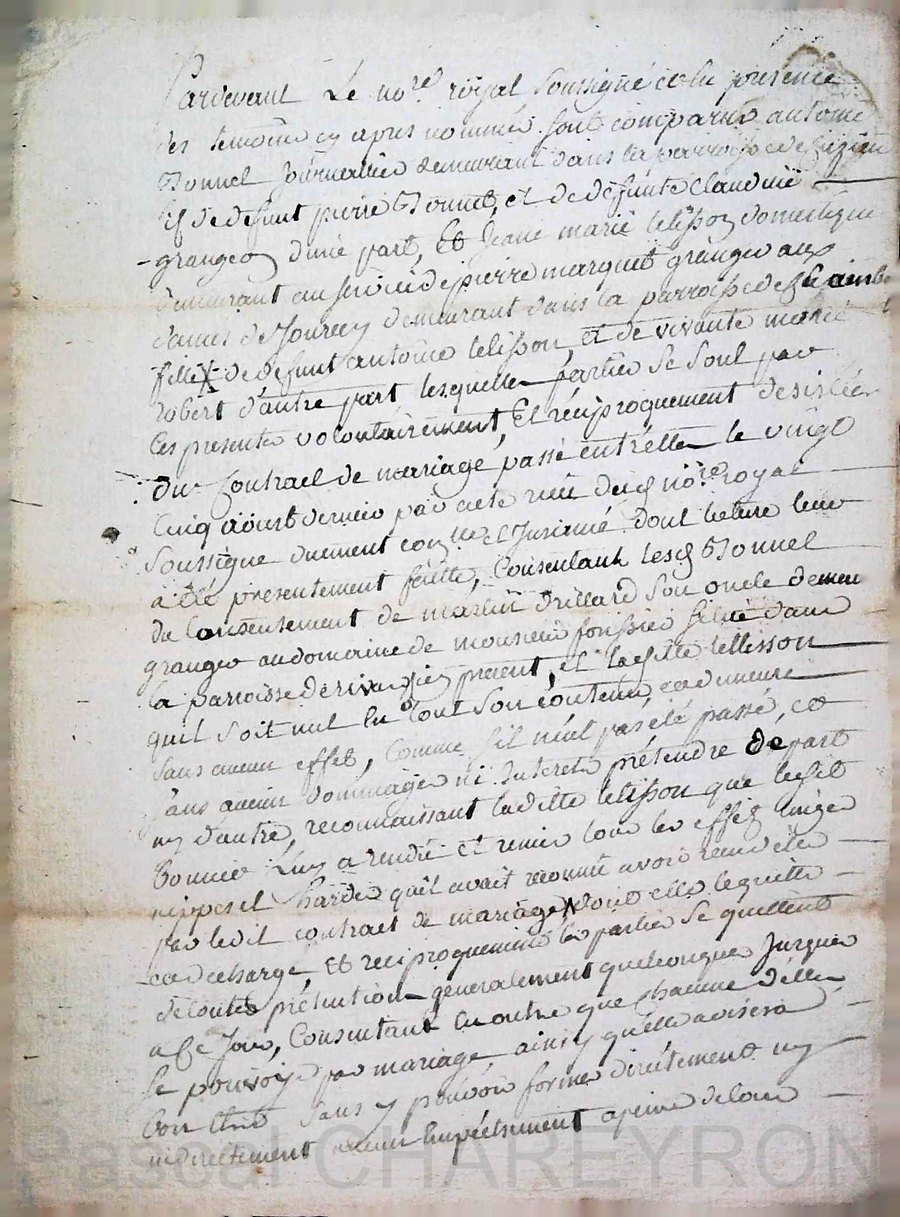 Pardevant Le no.re royal soussigné et En presence
des temoins cy apres nommés sont comparus antoine
Bonnel Journallier demeurant dans la parroisse de
fils de defunt pierre Bonnel, et de defunte Claudine
granger d'une part, Et Jeane marie telisson domestique
demeurant au service de pierre marquet granger aux
dames de Jourcey demeurant dans la parroisse de
fille de defunt antoine telisson, et de vivante marie
robert d'autre part lesquelles parties se sont par
Ces presentes volontairement, Et réciproquement desistées
du Contract de mariage, passé entr'elles le vingt
Cinq aoust dernier par acte reçu dud no.re royal
soussigné duement con.lle et Insinué dont lecture leur
a été presentement faitte, Consentant lesd Bonnel
du Consentement de martin drillard son oncle demeu
granger au domaine de monsieur situé dans
la parroisse de present, et laditte tellisson
quil soit nul En tout son contenu, et demeure
sans aucun effet, Comme s'il n'eut pas été passé, et
sans aucuns dommages ni Interets prétendre de part
ny d'autre, reconnaissant laditte telisson que ledit
Bonnel Luy a rendu et remis tous les effets linges
nippes et hardes quil avait reconnu avoir
par ledit contract de mariage dont elle le quitte
et decharge Et reciproquement les parties se quittent
de touttes prétention generalement quelconques Jusques
a Ce Jour, Consentant En outre que chacune d'elles
se pourvoye par mariage ainsy qu'elle avisera
bon Etre sans y pouvoir former directement ny
indirectement aucun Empêchement a peine de tous
Pascal CHAREYRON